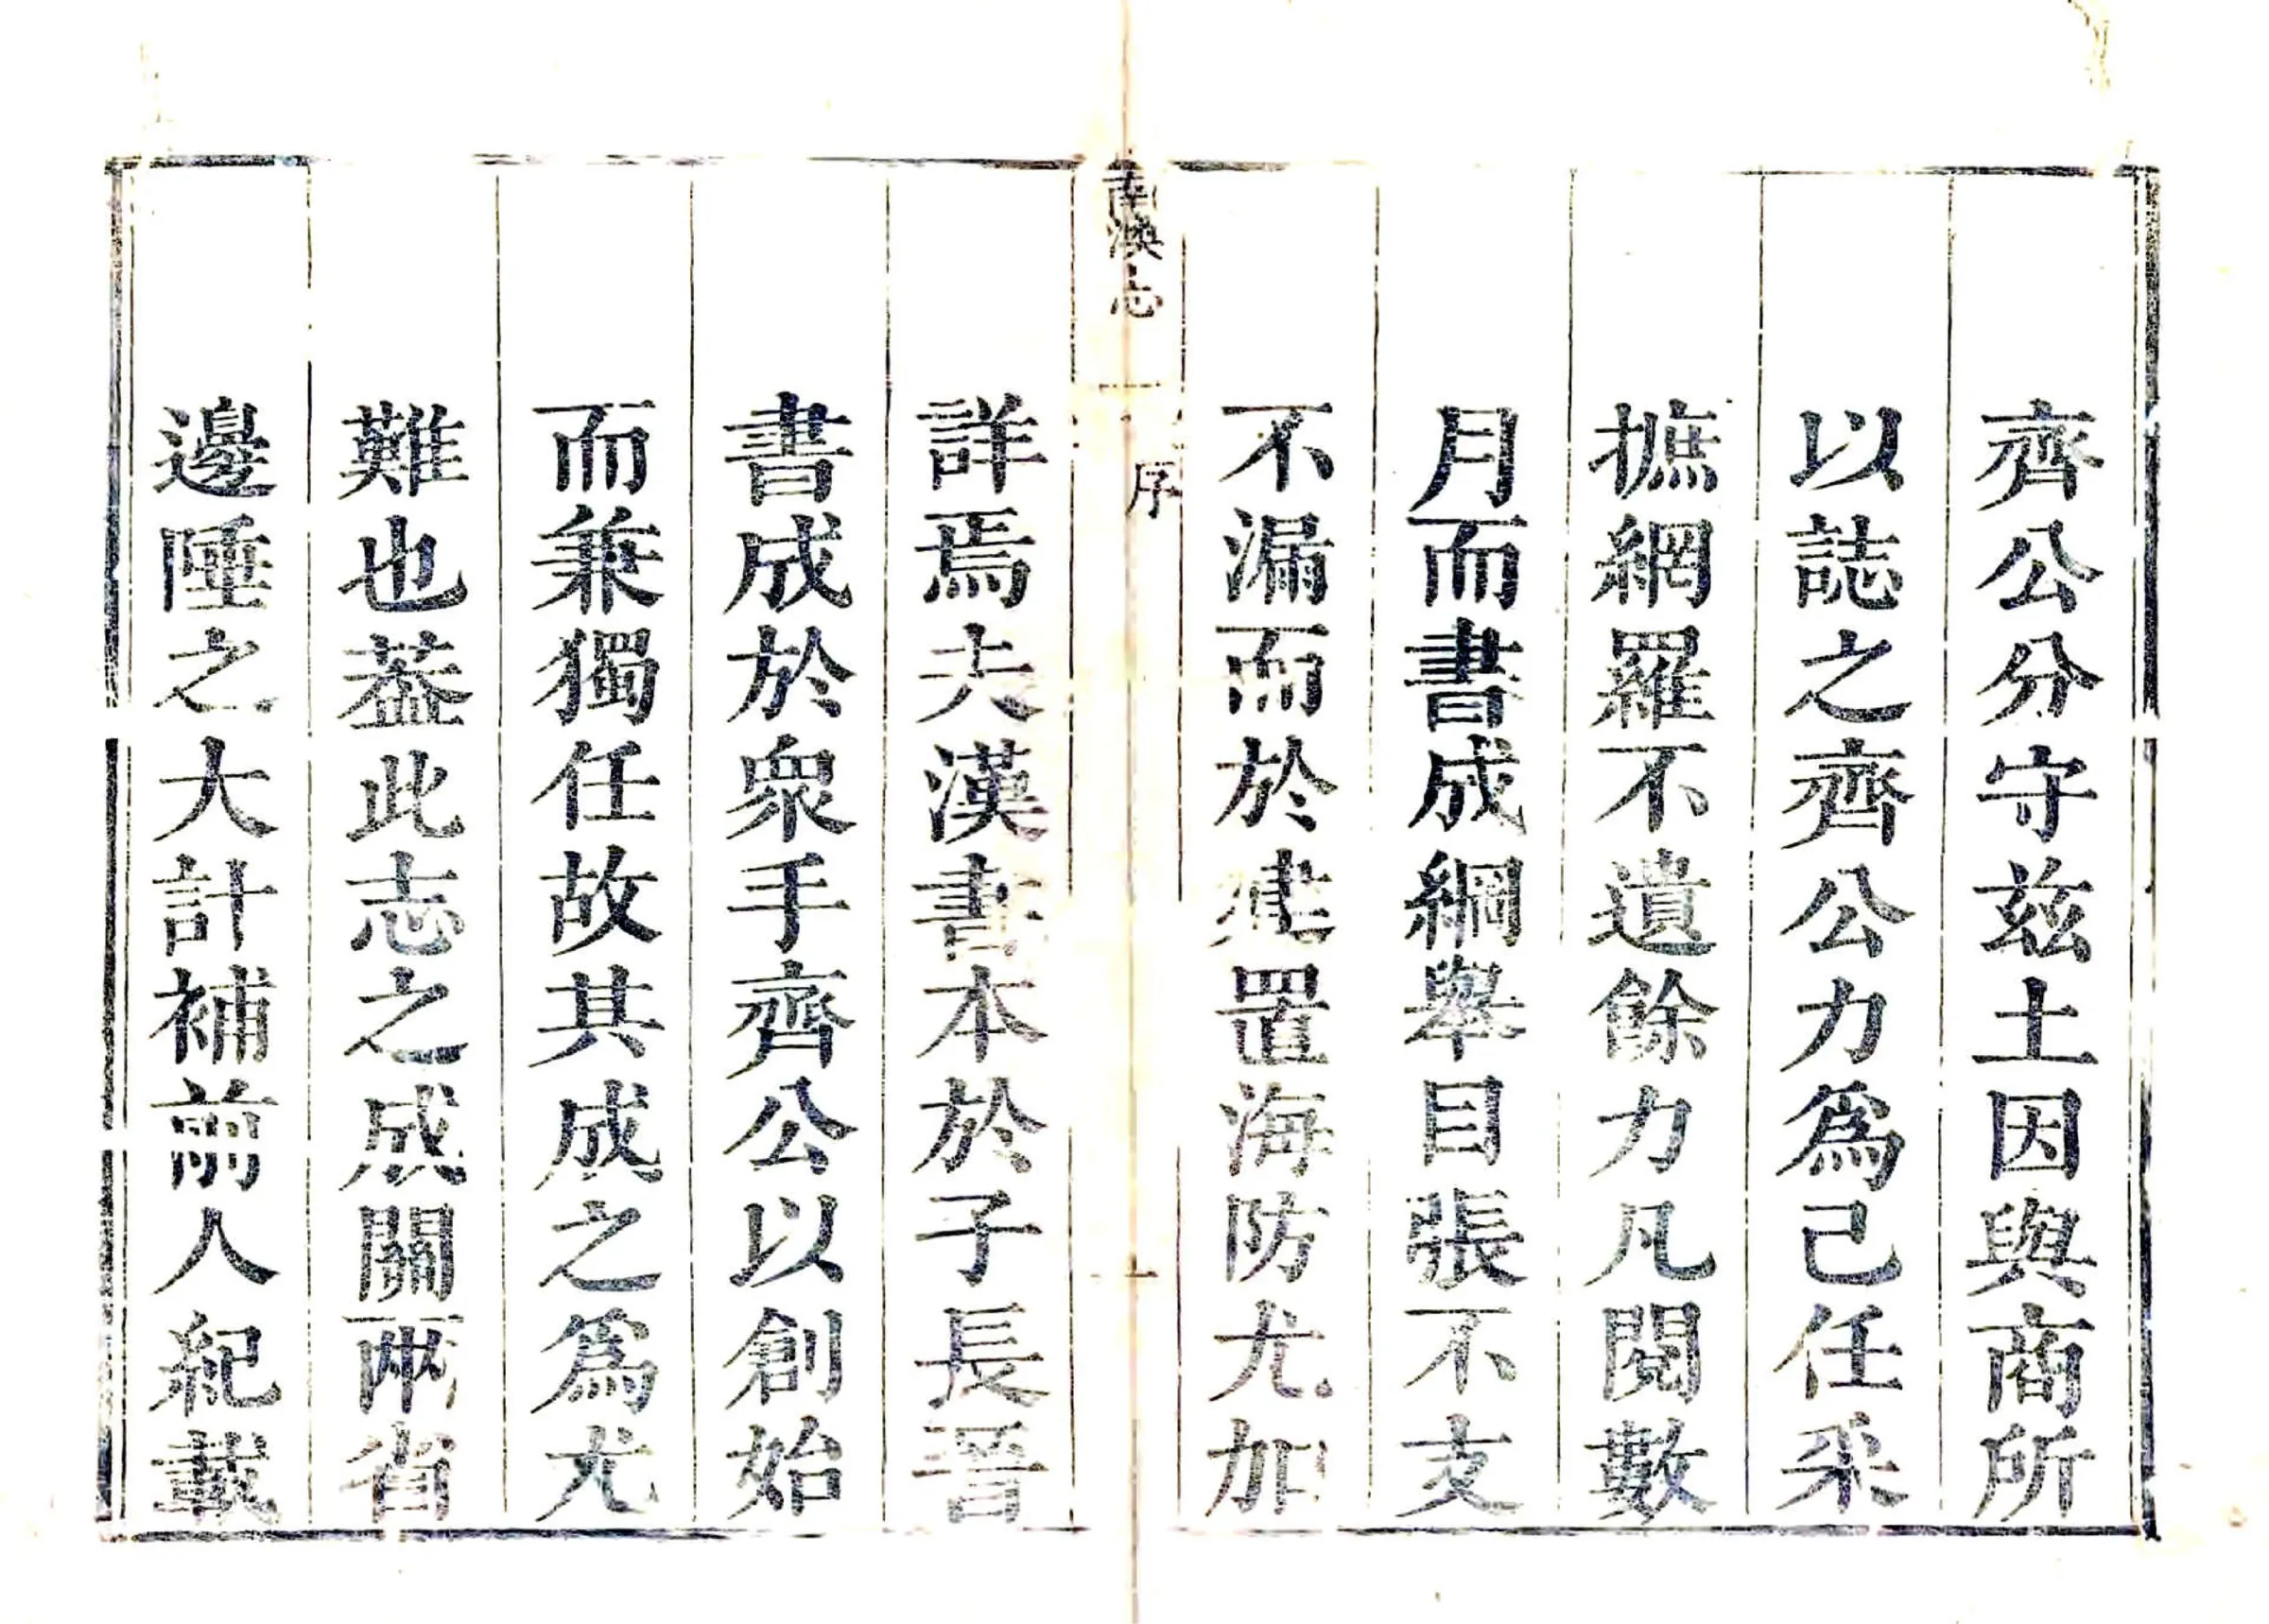 齊公分守兹土因與商所
以誌之齊公力爲己任采
摭網羅不遺餘力凡閱數
月而書成綱舉目張不支
不漏而於建置海防尤加
南澳志
序
一
詳焉夫漢書本於子長晋
書成於衆手齊公以創始
而兼獨任故其成之爲尤
難也葢此志之成關兩省
邊陲之大計補前人紀載